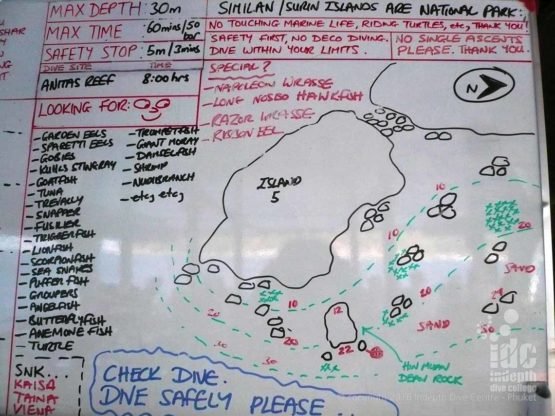 MAX DEPTH: 30m
MAX TIME: 60mins/50 bar
SAFETY STOP: 5m/3mins
DIVE SITE TIME
ANITAS REEF 8:00hrs
LOOKING FOR:
SIMILAN/SURIN ISLANDS ARE NATIONAL PARK:
NO TOUCHING MARINE LIFE, RIDING TURTLES, etc, THANK YOU!
SAFETY FIRST, NO DECO DIVING.
DIVE WITHIN YOUR LIMITS.
NO SINGLE ASCENTS
PLEASE. THANK YOU.
SPECIAL?
- NAPOLEON WRASSE
- LONG NOSED HAWKFISH
- RAZOR WRASSE
- RIBBON EEL
- GARDEN EELS
- SPAGETTI EELS
- GOBIES
- KUHLS STINGRAY
- GOATFISH
- TUNA
- TREVALLY
- SNAPPER
- FUSILIER
- TRIGGERFISH
- LIONFISH
- SCORPIONFISH
- SEA SNAKES
- PUFFER FISH
- GROUPERS
- ANGELFISH
- BUTTERFLYFISH
- ANEMONE FISH
- TURTLE
- TRUMPETFISH
- GIANT MORAY
- DAMSELFISH
- SHRIMP
- NUDIBRANCH
- etc, etc,
SNK...
KAISA
TAINA
VIENA
CHECK DIVE.
DIVE SAFELY PLEASE...
N
ISLAND
5
10
20
SAND
20
SAND
30
10
20
30
10
20
12
22
HIN MUAN
DEAN ROCK
idc
indepth
dive college
Indepth Dive Centre - Phuket